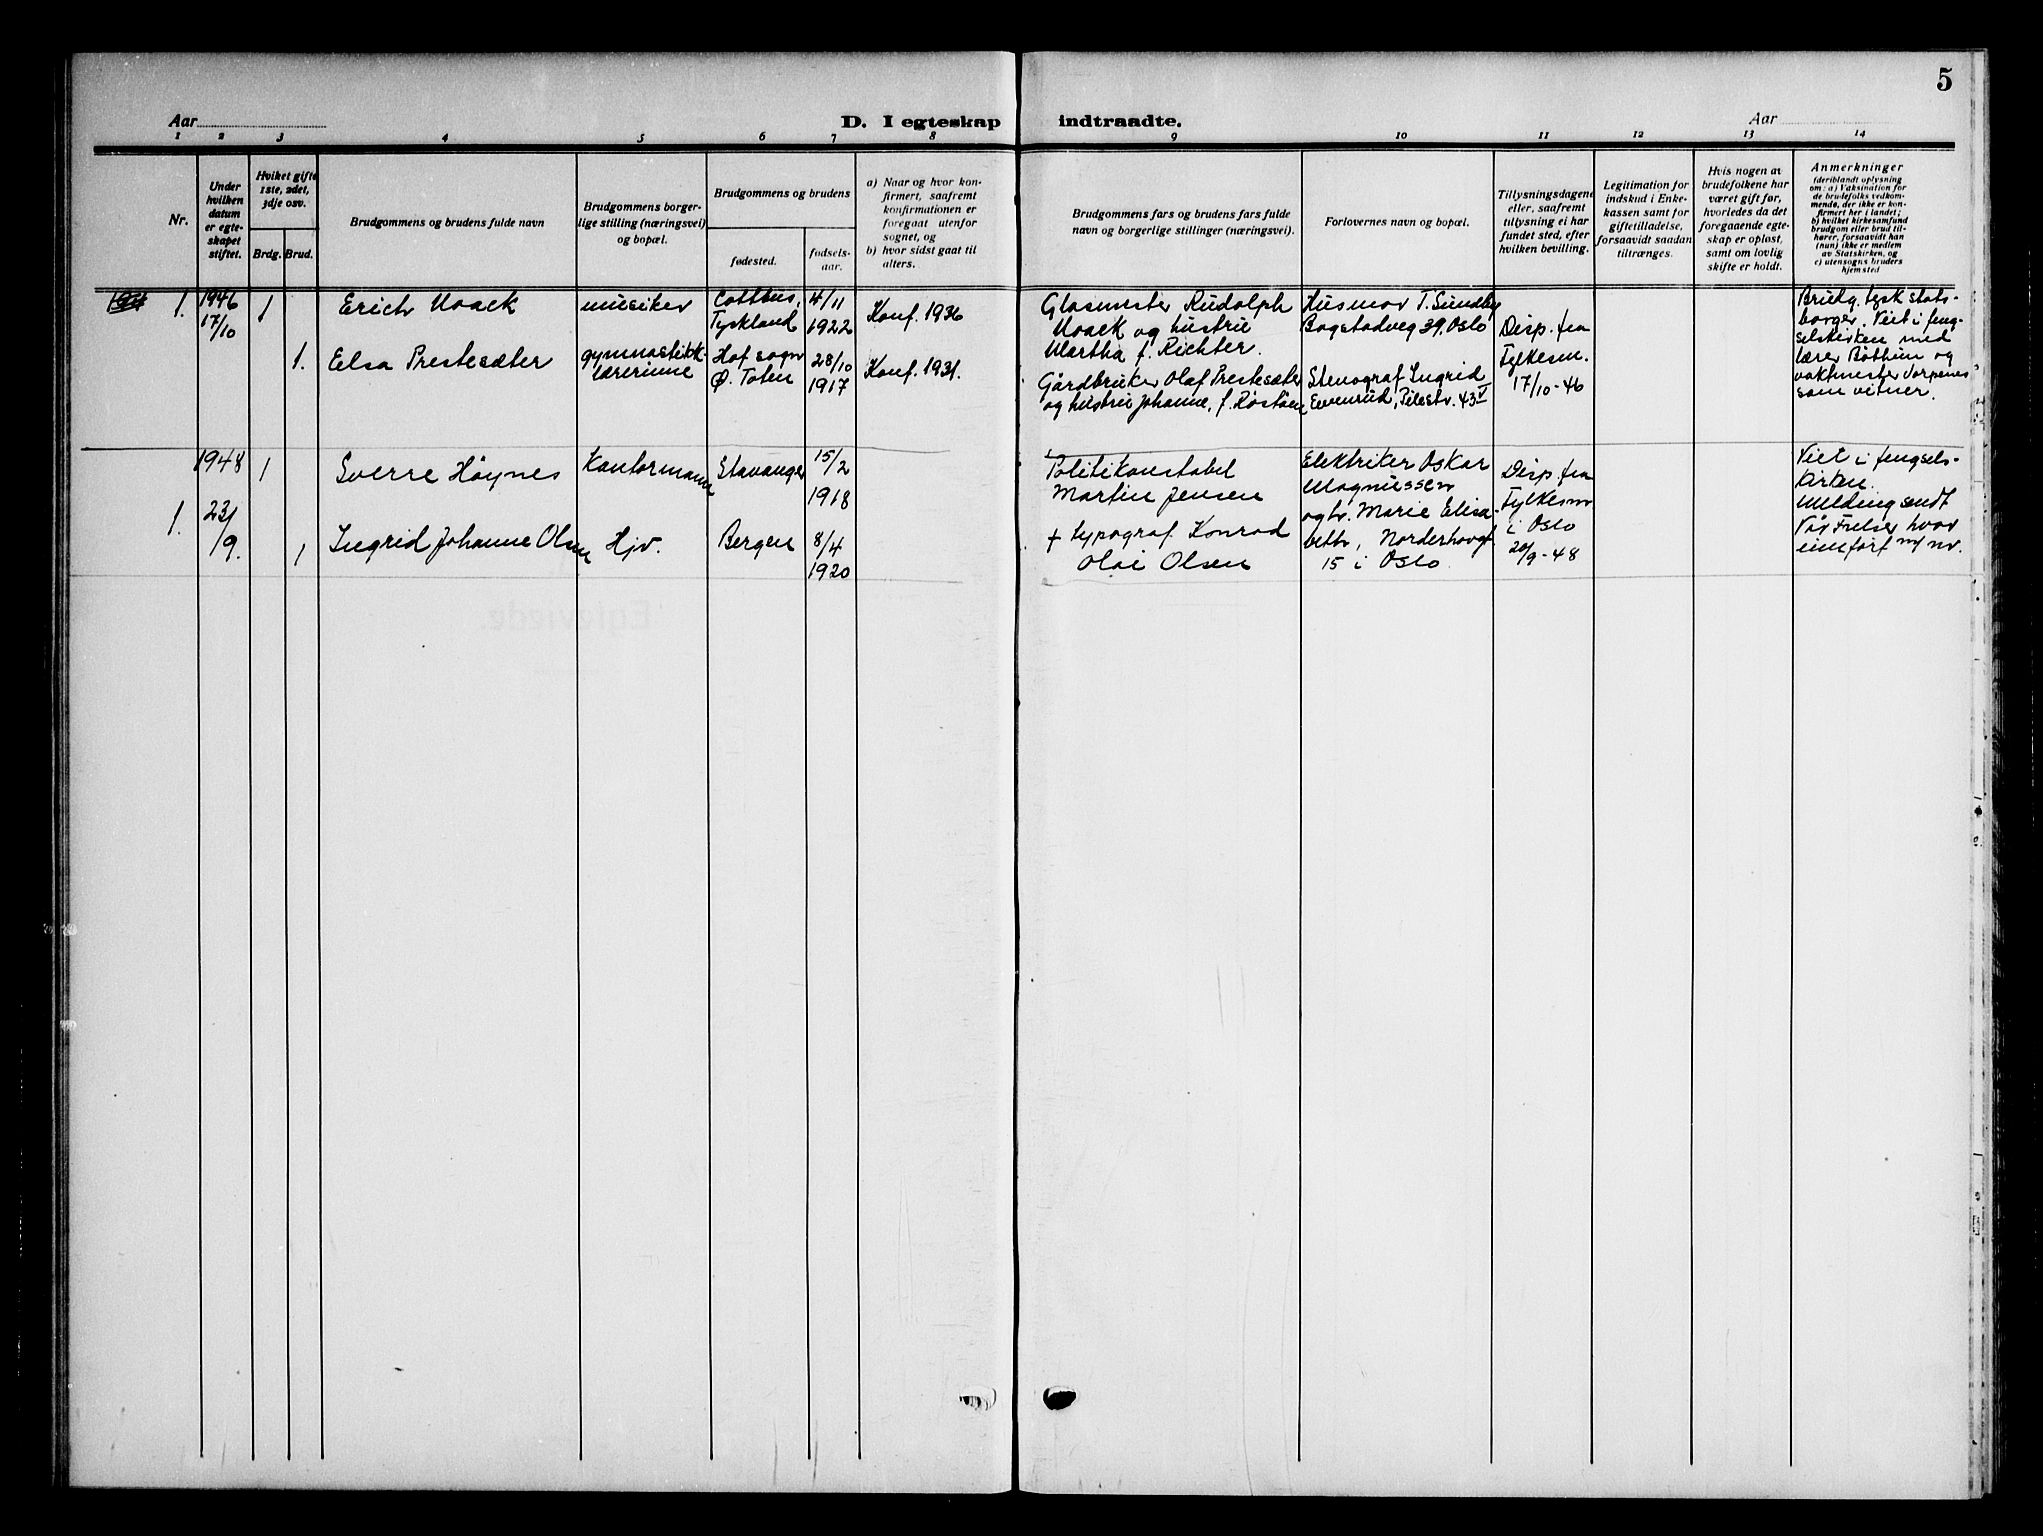 5
Aar
D. I egteskap indtraadte.
Aar
1 2 3 4 5 6 7 8 9 10 11 12 13 14
Nr.
Under
hvilken
datum
er egte-
skapet
stiftet.
Hviket gifte
1ste, 2det,
3dje osv.
Brdg. Brud.
Brudgommens og brudens fulde navn
Brudgommens borger-
lige stilling (næringsvei)
og bopæl.
Brudgommens og brudens
fødested.
fødsels-
aar.
a) Naar og hvor kon-
firmert, saafremt
konfirmationen er
foregaat utenfor
sognet, og
b) hvor sidst gaat til
alters.
Brudgommens fars og brudens fars fulde
navn og borgerlige stillinger (næringsvei).
Forlovernes navn og bopæl.
Tillysningsdagene
eller, saafremt
tillysning ei har
fundet sted, efter
hvilken bevilling.
Legitimation for
indskud i Enke-
kassen samt for
giftetilladelse,
forsaavidt saadan
tiltrænges.
Hvis nogen av
brudefolkene har
været gift før,
hvorledes da det
foregaaende egte-
skap er opløst,
samt om lovlig
skifte er holdt.
Anmerkninger
(deriblandt oplysning
om: a) Vaksination for
de brudefolks vedkom-
mende, der ikke er kon-
firmert her i landet;
b) hvilket kirkesamfund
brudgom eller brud til-
hører, forsaavidt han
(hun) ikke er medlem
av Statskirken, og
c) utensogns bruders
hjemsted
1.
1946
17/10
1
Erich Noack
musiker
Cottbus,
Tyskland
4/11
1922
Konf. 1936
Glasmester Rudolph
Noack og hustru
Martha f. Richter.
Husmor T. Sundby
Bogstadveg 39, Oslo
Disp. fra
Fylkesm.
17/10-46
Brudg. tysk stats-
borger. Viet i feng-
selskirken med
lærer Bøthun og
vaktmester Torpenes
som vitner.
1.
Elsa Prestesæter
gymnastikk-
lærerinne
Hof sogn
Ø. Toten
28/10
1917
Konf. 1931.
Gårdbruker Olaf Prestesæter
og hustru Johanne, f. Røstøen
Stenograf Ingrid
Evensrud, Pilestr. 43 V
1.
1948
23/
/9.
1
Sverre Høynes
Kontormann
Stavanger
15/2
1918
Politikonstabel
Martin Jensen
Elektriker Oskar
Magnussen
og hr. Marie Elisa-
beth, Norderhovgt.
15 i Oslo
Disp. fra
Fylkesm
i Oslo
20/9-48
Viet i fengsels-
kirken.
Melding sendt
Vår Frelser hvor
innført m/ nr.
1
Ingrid Johanne Olsen
Hjv.
Bergen
8/4
1920
+ typograf Konrad
Olai Olsen